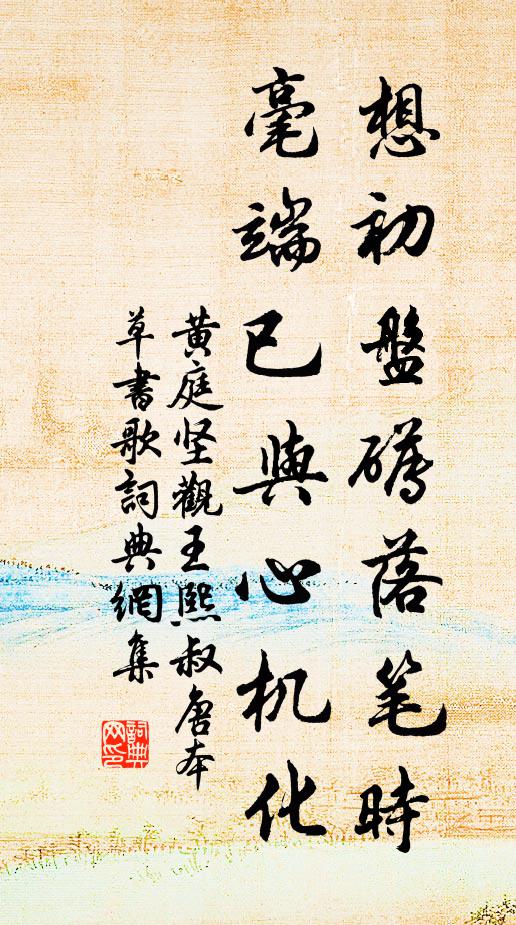 想初盤礴落笔時
毫端已與心机化
黄庭坚觀王熙叔唐本
草書歌詞典網集
詞典网印